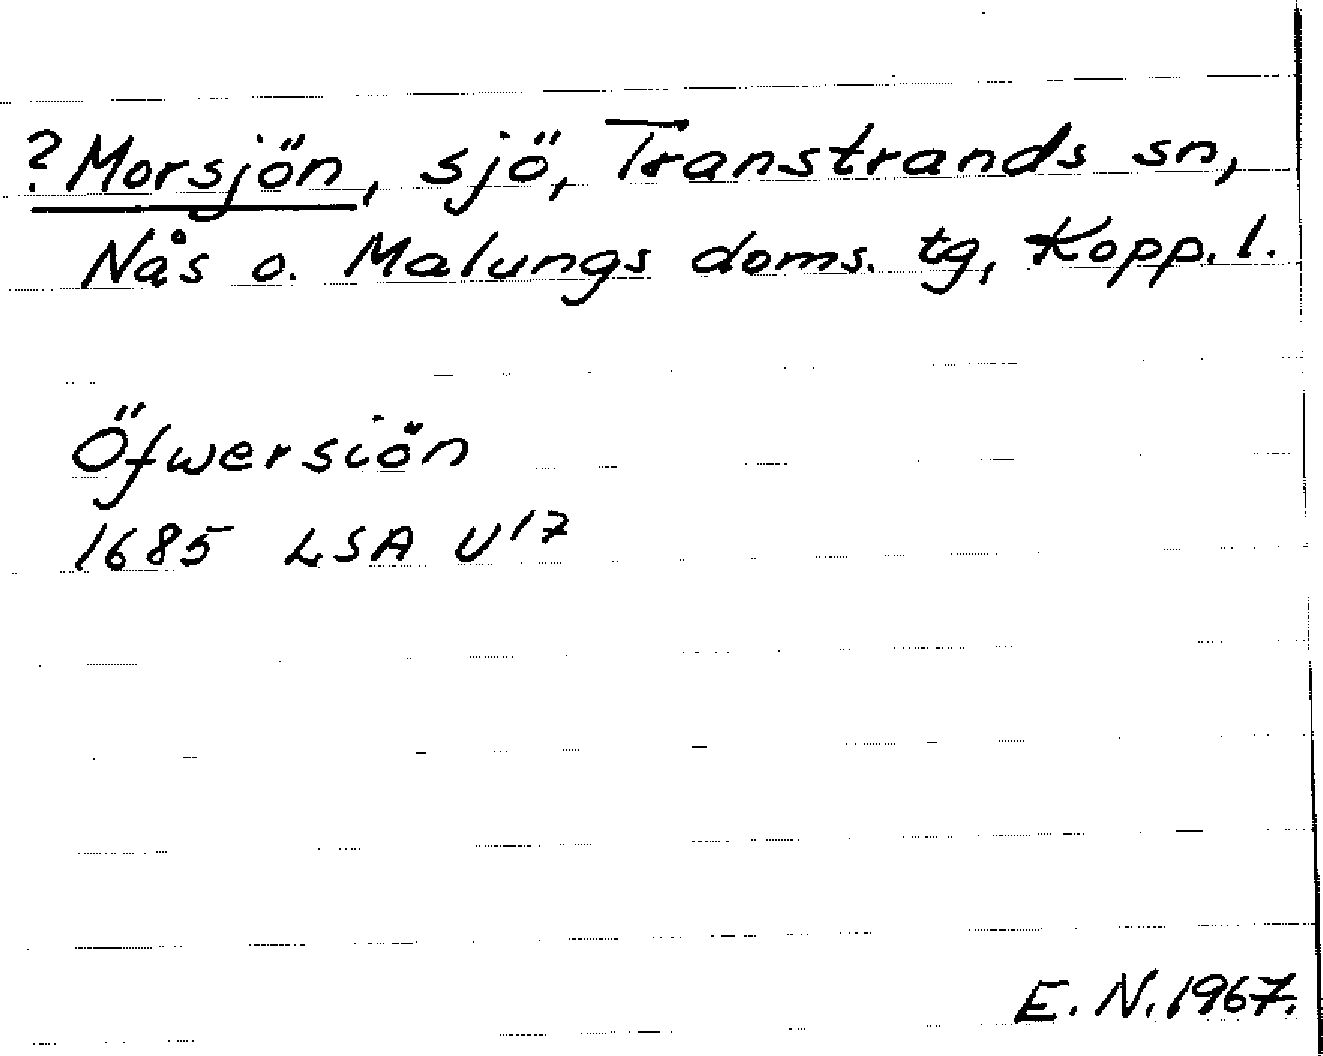 ?Morsjön, sjö, Transtrands sn,
Nås o. Malungs doms. tg, Kopp. l.
Öfwersiön
1685 LSA U17
E. N. 1967.